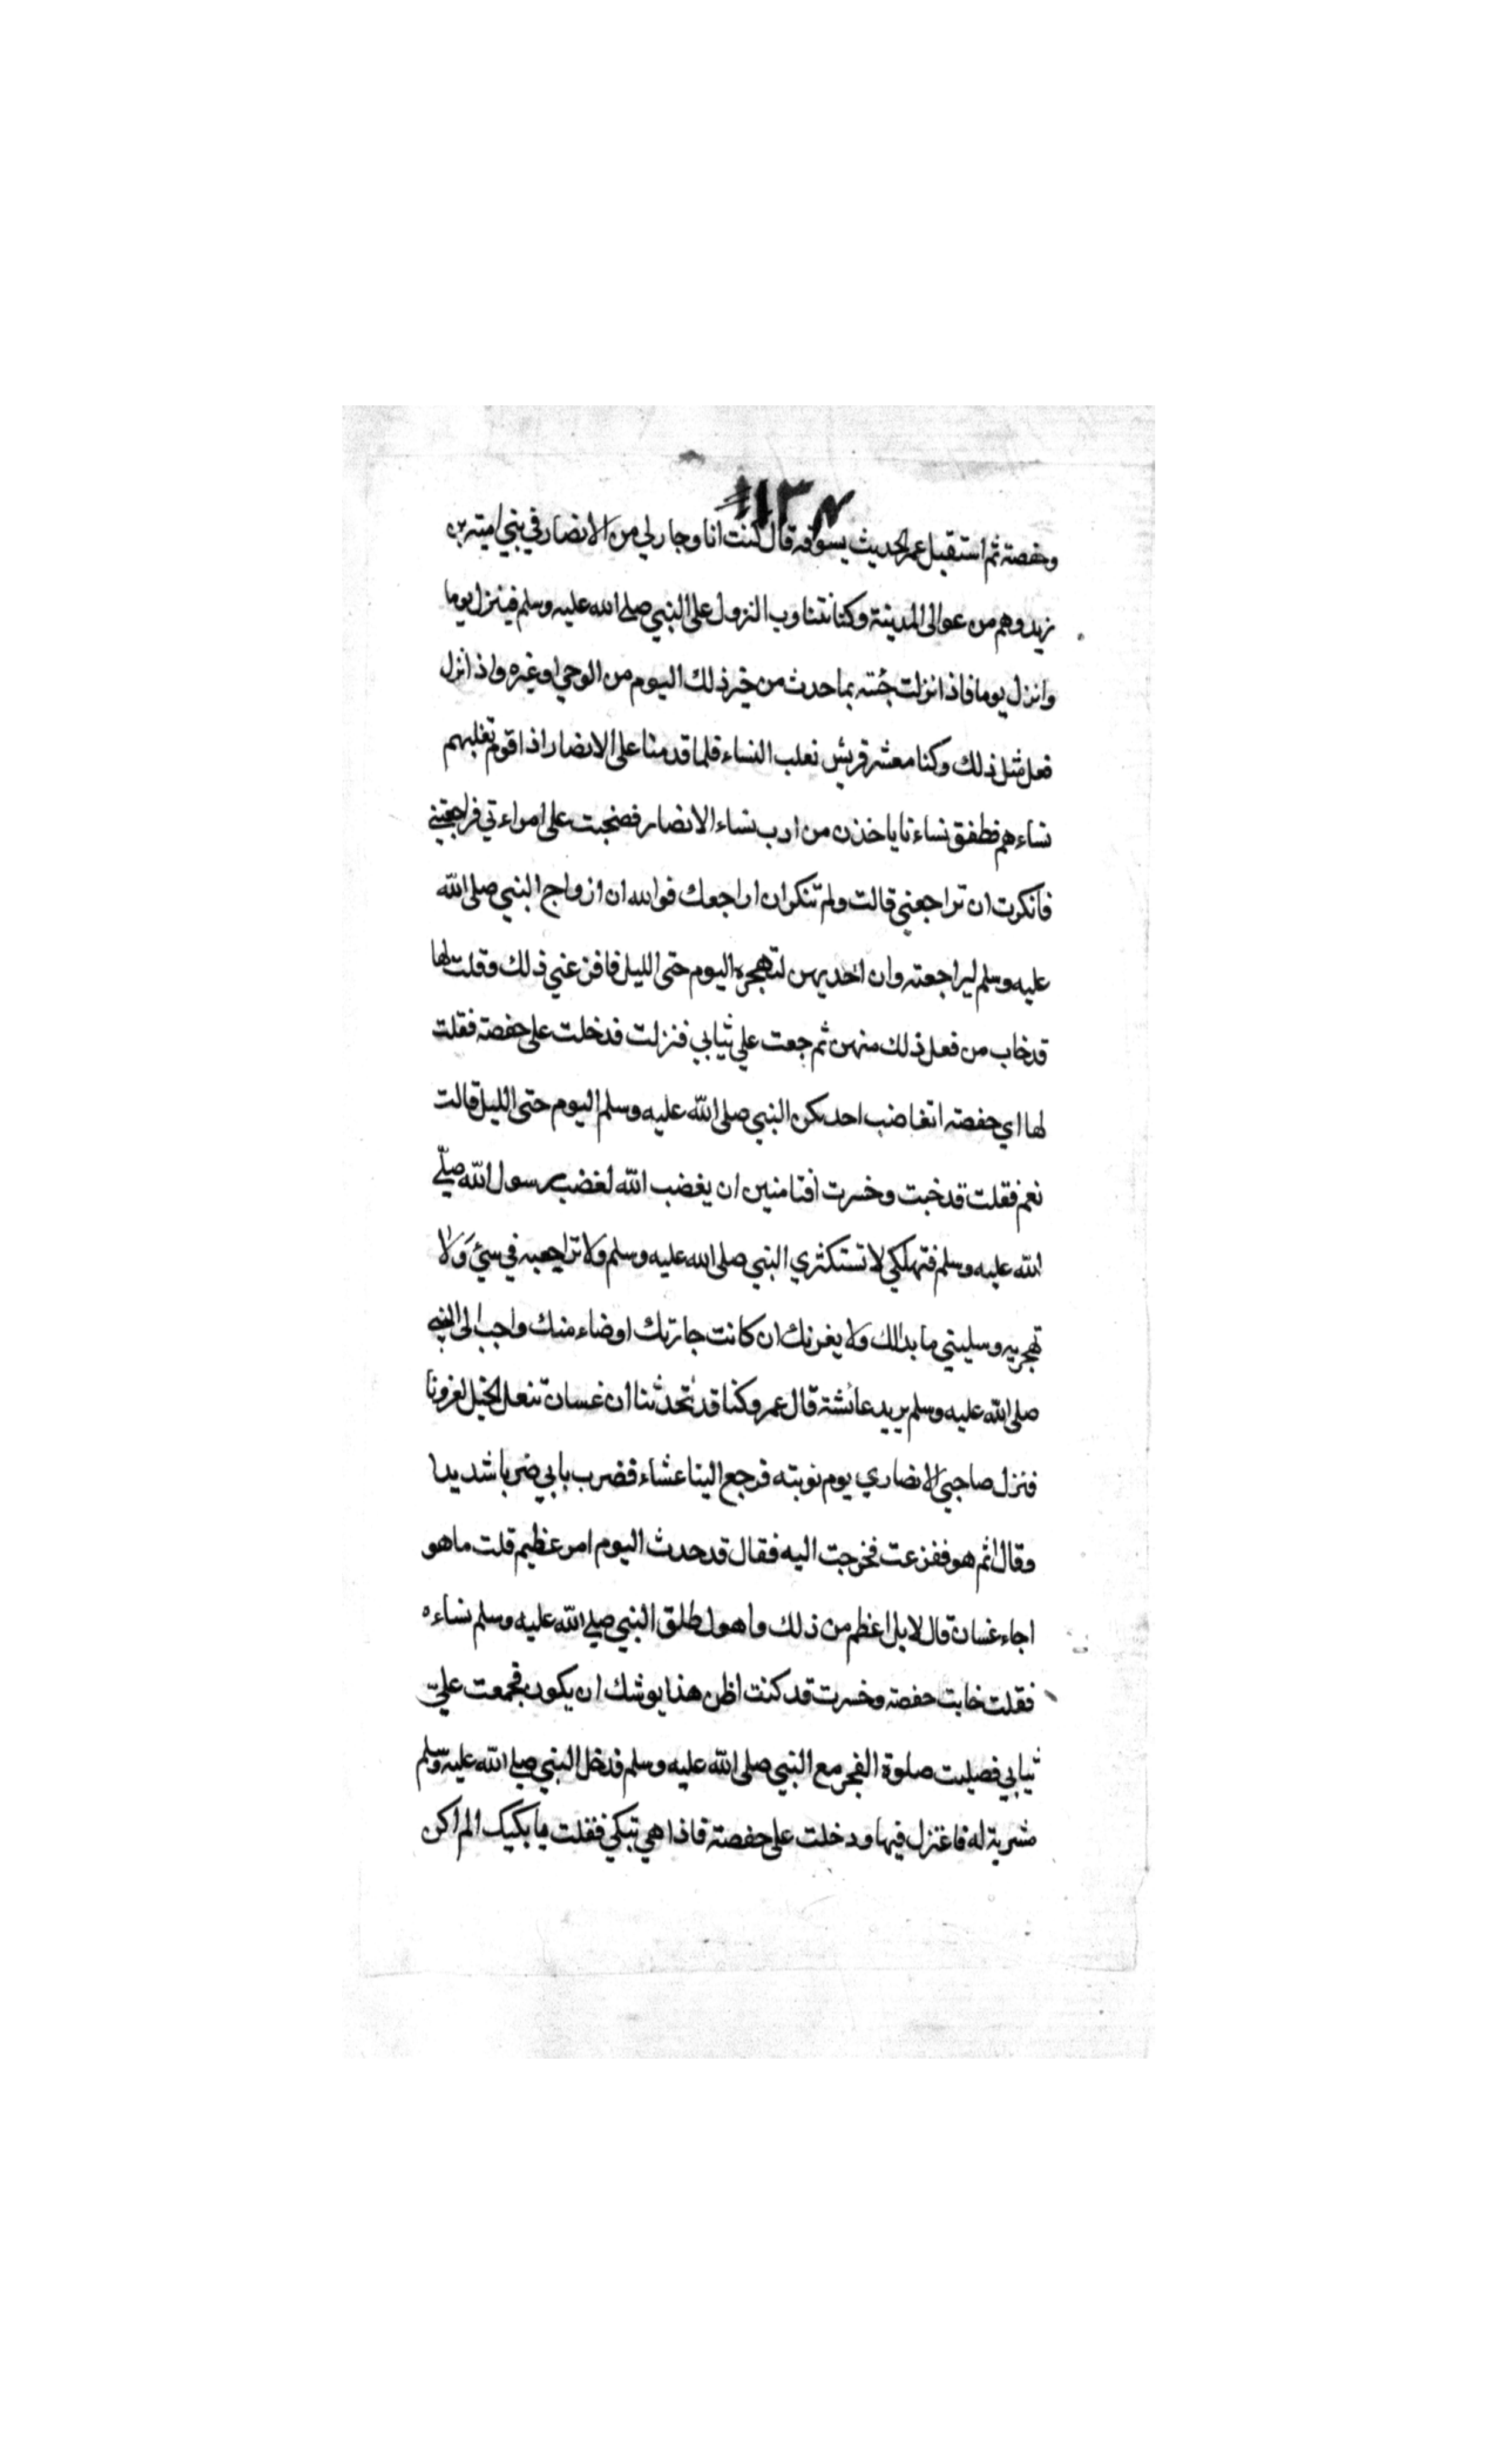 وحفصة ثم استقبل عمر الحديث يسوقه قال كنت انا وجار لي من الانصار في بني امية بن
زيد وهم من عوالى المدينة وكنا نتناوب النزول على النبي صلى الله عليه وسلم فينزل يوما
وانزل يوما فاذا نزلت جئته بما حدث من خبر ذلك اليوم من الوحي اوغيره واذا نزل
فعل مثل ذلك وكنا معشر قريش نغلب النساء فلما قدمنا على الانصار اذا قوم تغلبهم
نساءهم فطفق نساءنا ياخذن من ادب نساء الانصار فصخبت على امراءتي فراجعتني
فانكرت ان تراجعني قالت ولم تنكر ان اراجعك فوالله ان ازواج النبي صلى الله
عليه وسلم ليراجعنه وان احديهن لتهجره اليوم حتى الليل فافزعني ذلك وقلت لها
قد خاب من فعل ذلك منهن ثم جمعت علي ثيابي فنزلت فدخلت على حفصة فقلت
لها اي حفصة اتغاضب احدىكن النبي صلى الله عليه وسلم اليوم حتى الليل قالت
نعم فقلت قد خبت وخسرت افتامنين ان يغضب الله لغضب رسول الله صلى
الله عليه وسلم فتهلكي لا تستكثري النبي صلى الله عليه وسلم ولا تراجعيه في شيء ولا
تهجريه وسليني ما بدالك ولا يغرنك ان كانت جارتك اوضاء منك واحب الى النبي
صلى الله عليه وسلم يريد عائشة قال عمر وكنا قد تحدثنا ان غسان تنعل الخيل لغزونا
فنزل صاحبي الانصاري يوم نوبته فرجع الينا عشاء فضرب بابي ضربا شديدا
وقال اثم هو ففزعت فخرجت اليه فقال قد حدث اليوم امر عظيم قلت ما هو
اجاء غسان قال لا بل اعظم من ذلك واهول طلق النبي صلى الله عليه وسلم نساءه
فقلت خابت حفصة وخسرت قد كنت اظن هذا يوشك ان يكون فجمعت علي
ثيابي فصليت صلوة الفجر مع النبي صلى الله عليه وسلم فدخل النبي صلى الله عليه وسلم
مشربة له فاعتزل فيها ودخلت على حفصة فاذا هي تبكي فقلت ما يبكيك الم اكن